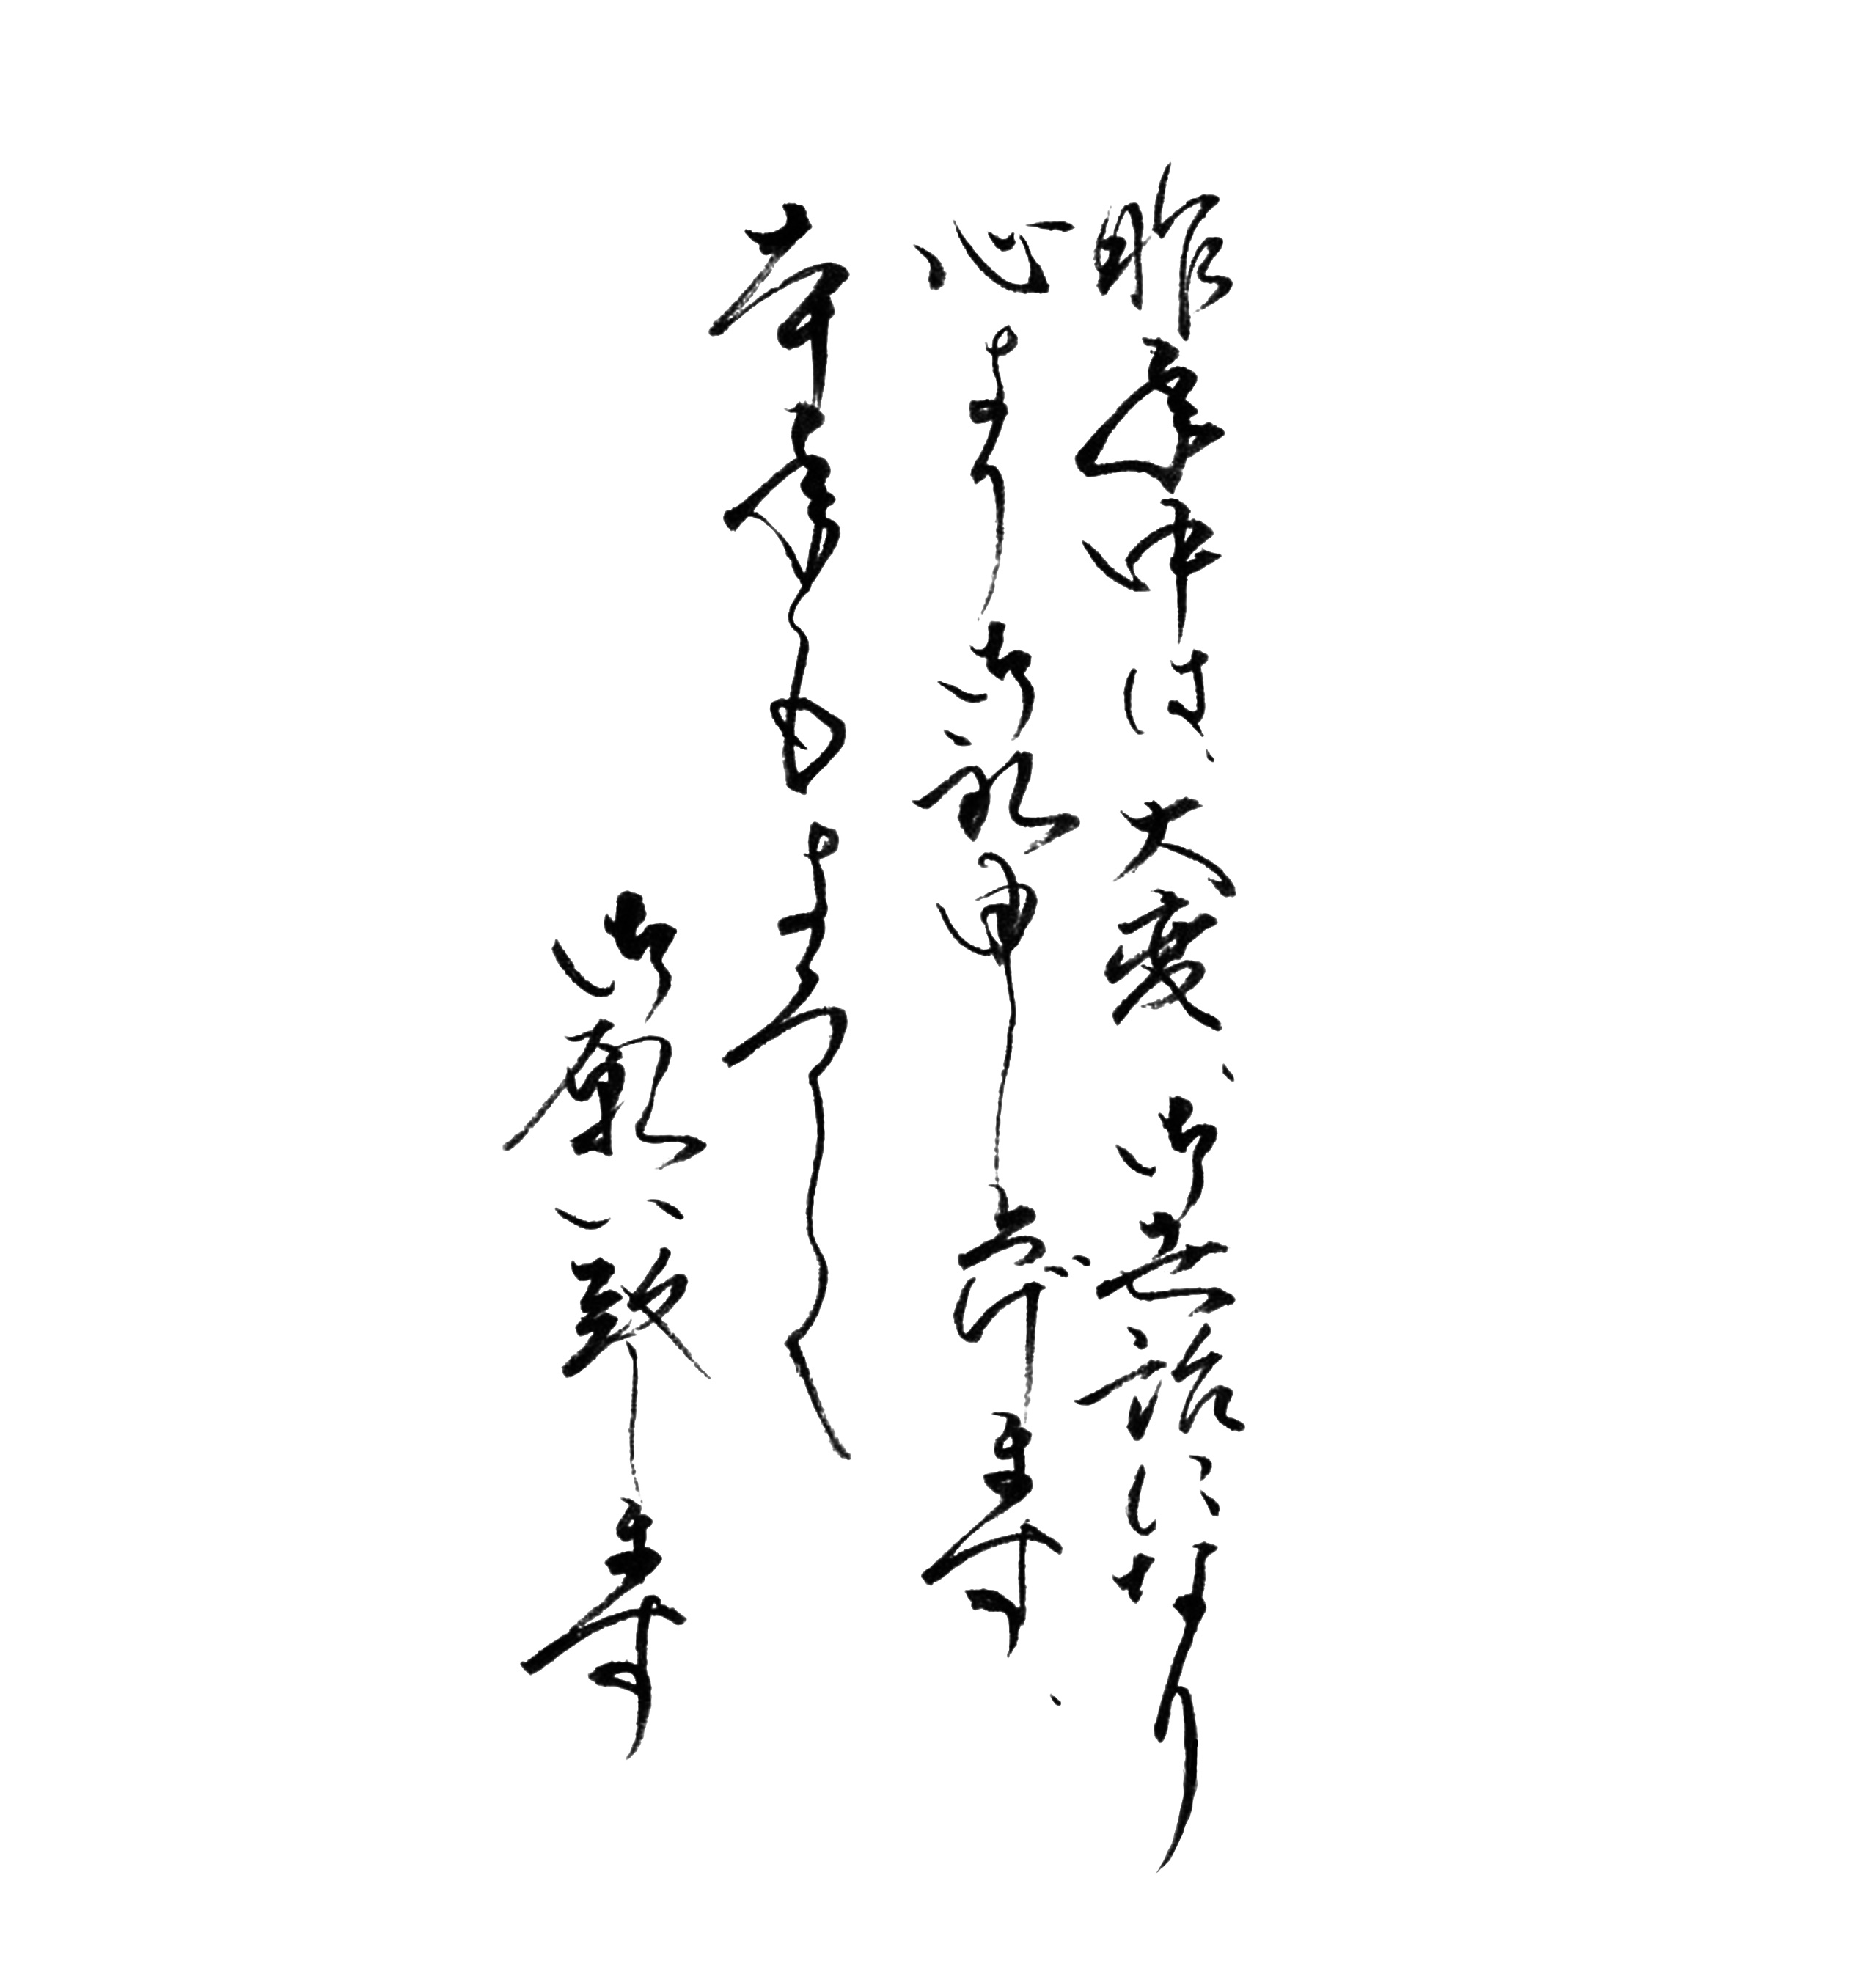 昨年中は、大変、御世話になり
心より御礼申し上げます、
本年もよろしく
御願い致します